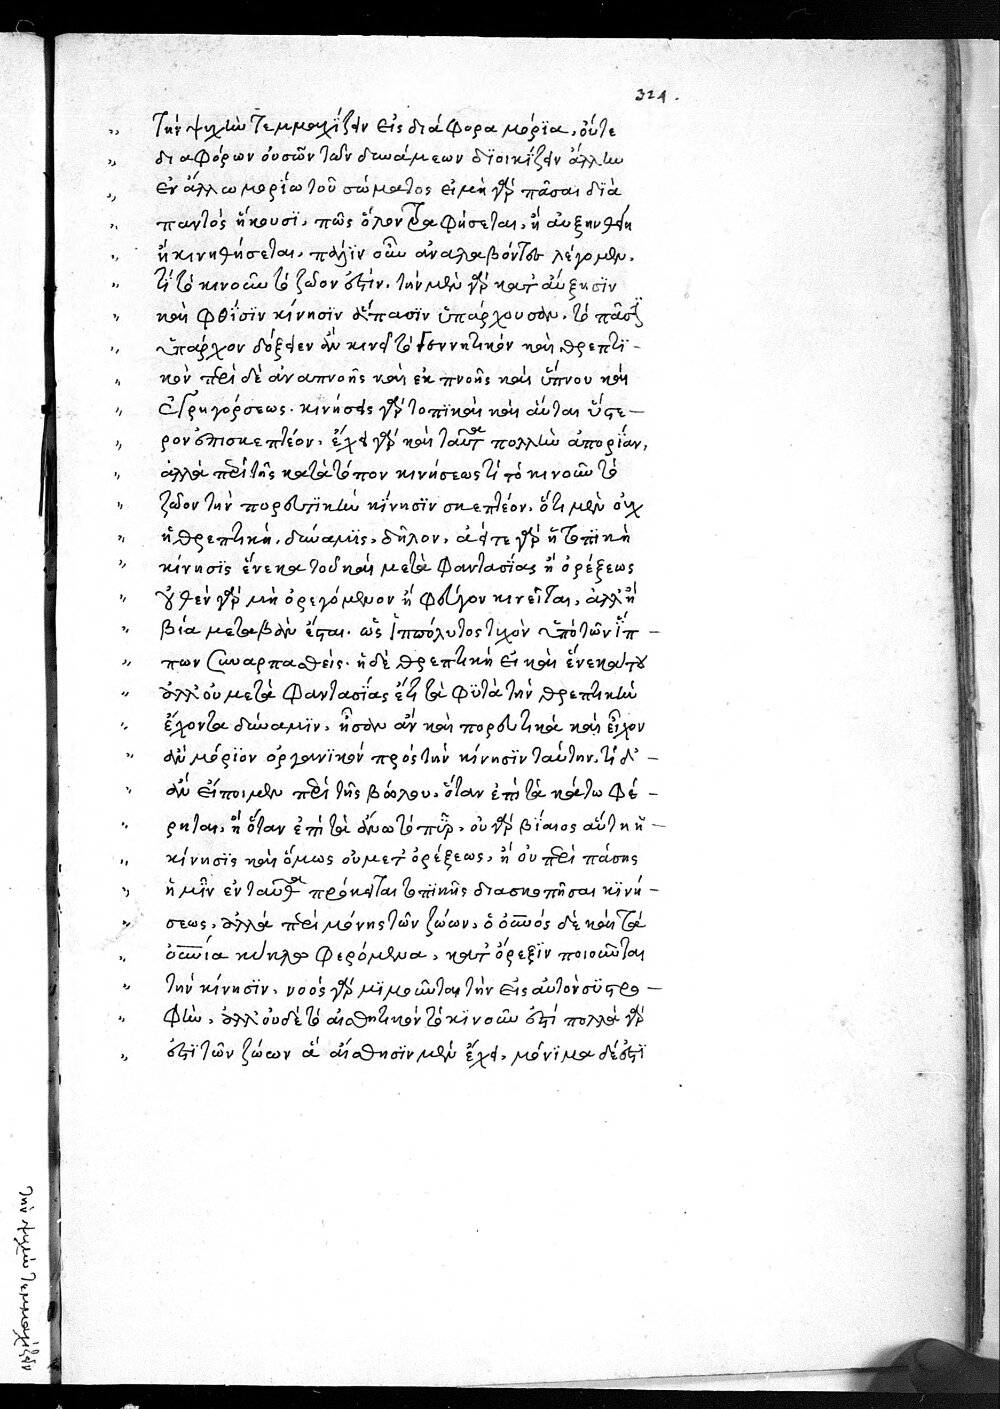 324.
τὴν ψυχὴν τεμμαχίζειν εἰς διάφορα μόρϊα, οὔτε
διαφόρων οὐσῶν τῶν δυνάμεων διοικίζειν ἄλλην
ἐν ἄλλω μορίω τοῦ σώματος εἰ μὴ γὰρ πᾶσαι διὰ
παντὸς ἥκουσι, πῶς ὅλον τραφήσεται, ἢ αὐξηνθῆ
ἢ κινηθήσεται, πάλιν οὖν ἀναλαβόντες λέγομεν,
τί τὸ κινοῦν τὸ ζῶον ἐστὶν, τὴν μὲν γὰρ κατ αὔξησϊν
καὶ φθίσϊν κίνησϊν ἅπασϊν ὑπάρχουσαν, τὸ πᾶσϊν
ὑπάρχον δόξειεν ἂν κινεῖ τὸ γεννητικὸν καὶ θρεπτϊ-
κὸν περὶ δὲ ἀναπνοῆς καὶ ἐκπνοῆς καὶ ὕπνου καὶ
ἐγρηγόρσεως. κινήσεις γὰρ τοπϊκαὶ καὶ αὗται ὕστε-
ρον ἐπισκεπτέον, ἔχει γὰρ καὶ ταῦτα πολλὴν ἀπορίαν,
ἀλλὰ περὶ τῆς κατὰ τόπον κινήσεως τί τὸ κινοῦν τὸ
ζῶον τὴν πορευτϊκὴν κίνησϊν σκεπτέον, ὅτι μὲν οὐχ
ἡ θρεπτικὴ, δύναμϊς, δῆλον, ἀεί τε γὰρ ἡ τοπϊκὴ
κίνησϊς ἕνεκα του καὶ μετὰ φαντασίας ἢ ὀρέξεως
οὐθὲν γὰρ μὴ ὀρεγόμενον ἢ φεῦγον κινεῖται, ἀλλ ἢ
βία μεταβὰν ἔσται. ὡς ἱππόλυτος τυχὸν ὑπὸ τῶν ἵπ-
πων συναρπαθεὶς. ἡ δὲ θρεπτικὴ εἰ καὶ ἕνεκα του
ἀλλ οὐ μετὰ φαντασίας ἔτι τὰ φϋτὰ τὴν θρεπτικὴν
ἔχοντα δύναμϊν, ἦσαν ἂν καὶ πορευτικὰ καὶ εἶχον
ἂν μόρϊον ὀργανϊκὸν πρὸς τὴν κίνησϊν ταύτην, τί δ' -
ἂν εἴποιμεν περὶ τῆς βώλου, ὅταν ἐπὶ τὰ κάτω φέ-
ρηται, ἢ ὅταν ἐπὶ τὰ ἄνω τὸ πῦρ, οὐ γὰρ βίαιος αὕτη ἡ -
κίνησϊς καὶ ὅμως οὐ μετ ὀρέξεως, ἢ οὐ περὶ πάσης
ἡμῖν ἐνταῦθα πρόκειται τοπικῆς διασκοπῆσαι κϊνή-
σεως, ἀλλὰ περὶ μόνης τῶν ζώων, ὁ οὐνὸς δὲ καὶ τὰ
οὐνία κύκλω φερόμενα, κατ ὄρεξϊν ποιοῦνται
τὴν κίνησϊν, νοὸς γὰρ μϊμοῦνται τὴν εἰς αὐτὸν σϋστρο-
φὴν, ἀλλ οὐδὲ τὸ αἰσθητικὸν τὸ κϊνοῦν ἐστὶ πολλὰ γὰρ
ἐστϊ τῶν ζώων ἃ αἴσθησϊν μὲν ἔχει, μόνϊμα δὲ ἐστϊ
τὴν ψυχὴν τεμμαχίζειν